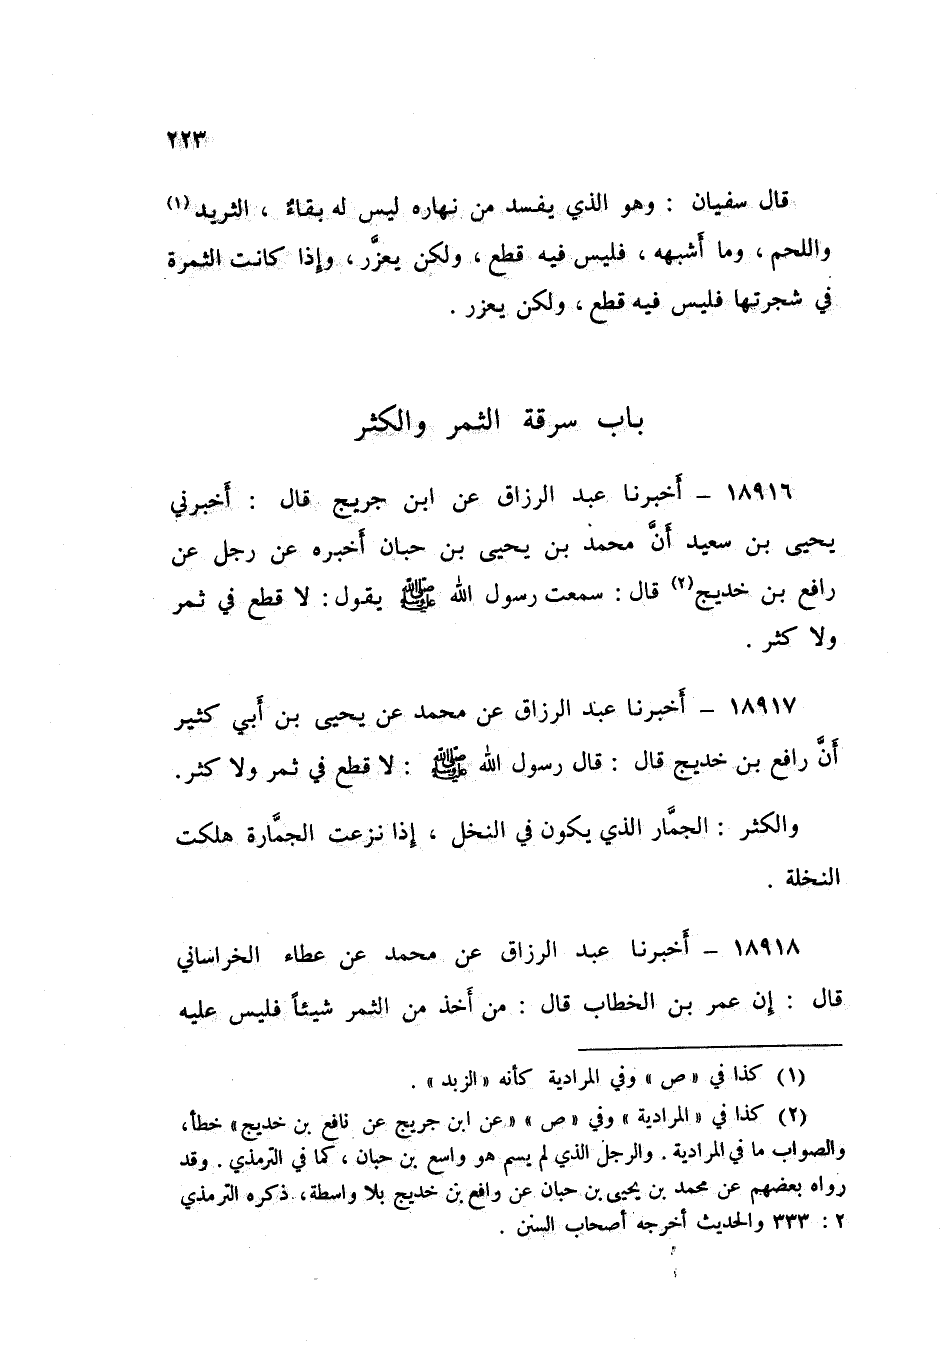 ٢٢٣
قال سفيان : وهو الذي يفسد من نهاره ليس له بقاءٌ ، الثريد(١)
واللحم ، وما أَشبهه ، فليس فيه قطع ، ولكن يعزَّر ، وإذا كانت الثمرة
في شجرتها فليس فيه قطع ، ولكن يعزر .
باب سرقة الثمر والكثر
١٨٩١٦ – أَخبرنا عبد الرزاق عن ابن جريج قال : أَخبرني
يحيى بن سعيد أَنَّ محمد بن يحيى بن حبان أَخبره عن رجل عن
رافع بن خديج(٢) قال : سمعت رسول الله ﷺ يقول : لا قطع في ثمر
ولا كثر .
١٨٩١٧ – أَخبرنا عبد الرزاق عن محمد عن يحيى بن أَبي كثير
أَنَّ رافع بن خديج قال : قال رسول الله ﷺ : لا قطع في ثمر ولا كثر.
والكثر : الجمَّار الذي يكون في النخل ، إذا نزعت الجمَّارة هلكت
النخلة .
١٨٩١٨ – أَخبرنا عبد الرزاق عن محمد عن عطاء الخراساني
قال : إن عمر بن الخطاب قال : من أَخذ من الثمر شيئاً فليس عليه
(١) كذا في « ص » وفي المرادية كأنه « الزبد » .
(٢) كذا في « المرادية » وفي « ص » « عن ابن جريج عن نافع بن خديج » خطأ،
والصواب ما في المرادية . والرجل الذي لم يسم هو واسع بن حبان ، كما في الترمذي . وقد
رواه بعضهم عن محمد بن يحيى بن حبان عن رافع بن خديج بلا واسطة، ذكره الترمذي
٢ : ٣٣٣ والحديث أخرجه أصحاب السنن .